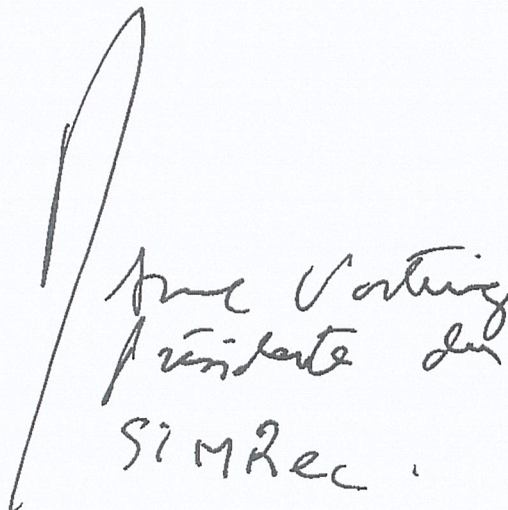 Anne Vorting
Présidente du
SIMRec.